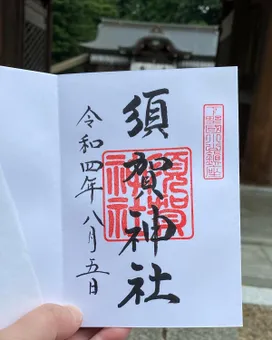 須賀神社
令和四年八月五日
須賀
神社